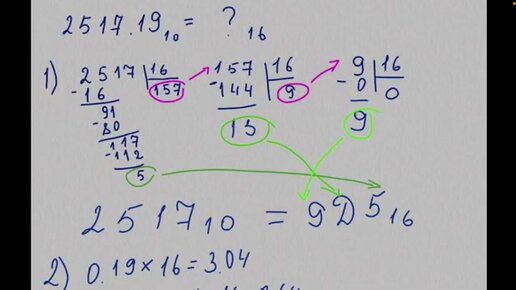 2517.19₁₀ = ?₁₆
1) 2517 |16 157 |16 9 |16
-16 157 -144 9 -0 0
91 13 9
-80
117
-112
5
2517₁₀ = 9D5₁₆
2) 0.19×16=3.04